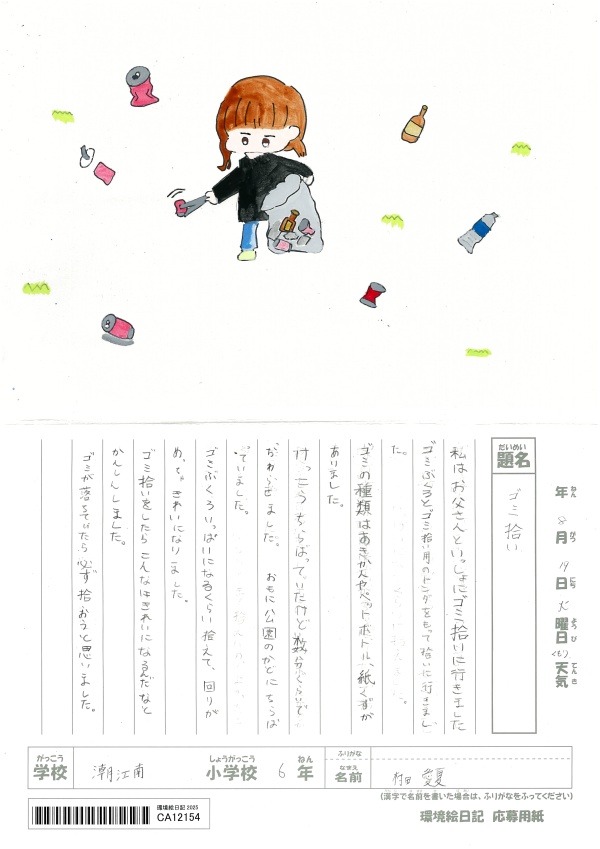 年 8月 19日 火曜日 くもり 天気
ねん がつ にち ようび てんき
だいめい
題名
ゴミ拾い
私はお父さんといっしょにゴミ拾いに行きました
ゴミぶくろとゴミ拾い用のトングをもって拾いに行きまし
た。
ゴミの種類はあきかんやペットボトル、紙くずが
ありました。
けっこうちらばっていたけど数分くらいで
おわらせました。おもに公園のかどにちらば
っていました。
ゴミぶくろいっぱいになるくらい拾えて、回りが
めっちゃきれいになりました。
ゴミ拾いをしたらこんなにきれいになるんだなと
かんしんしました。
ゴミが落ちていたら必ず拾おうと思いました。
がっこう
学校
潮江南
しょうがっこう
小学校
6
ねん
年
ふりがな
なまえ
名前
愛夏
(漢字で名前を書いた場合は、ふりがなをふってください)
環境絵日記 2025
CA12154
環境絵日記 応募用紙